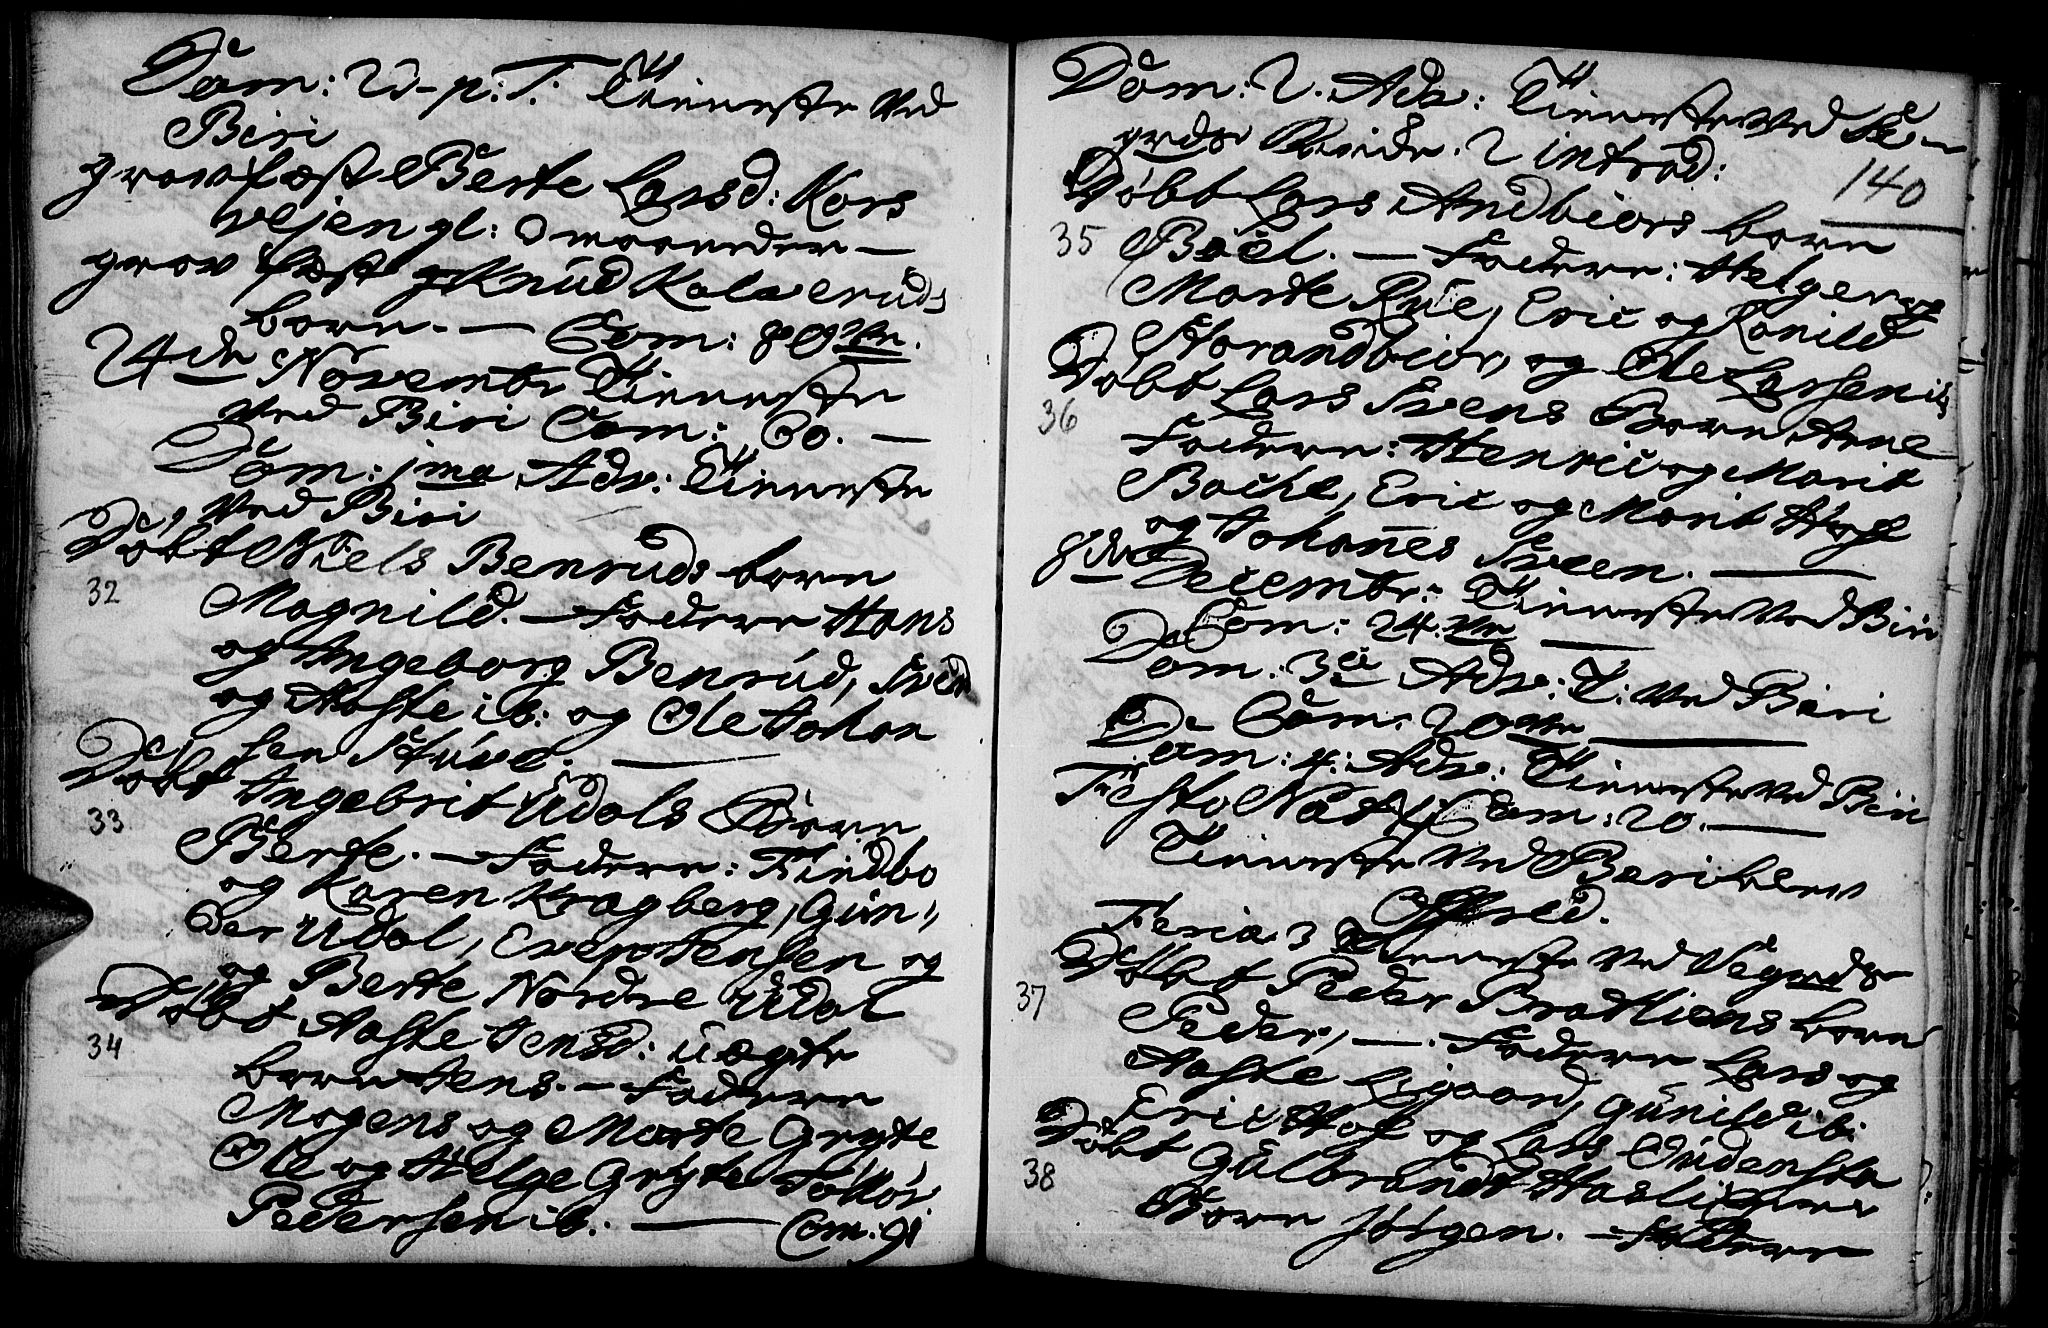 Dom: 23 p: T. Tienneste ved
Biri
grov fæst Berte Larsd: Kors
vejen gl: 2 maaneder —
grov fæst Knud Kalveruds
born. — Com: 80
24de Novembr Tienneste
ved Biri Com: 60. —
Dom: 1ma Adv: Tienneste
ved Biri
Døbt Niels Benruds born
32
Magnild. — Faddere Hans
og Ingeborg Benrud, Svend
og Aaste ib: og Ole Johan
sen Stuve. —
Døbt Ingebrit Udals Born
33
Berte. — Faddere: Findbo
og Karen Kragberg, Gun„
der Udal, Even Jensen og
og Berte Nordre Udal
Døbt Aaste Jensd: uægte
34
born Jens. — Faddere
Mogens og Marte Gryte
Ole og Helge Gryte Tollov
Pedersen ib. — Com: 91
Dom: 2. Adv: Tienneste ved Se-
grds Kirke. 2 introd:
140
Døbt Lars Andbiors born
35
Boel. — Faddere: Helge og
Marte Rue, Eric og Ronild
Storandbior, og Ole Larsen ib
Døbt Lars Svens Born Arne
36
Faddere: Henric og Marit
Bache, Eric og Marit Hofe
og Johanes Sveen. —
8de Decembr: Tienneste ved Biri
Com: 24. —
Dom. 3 Adv: T: ved Biri
Com: 20 —
Dom: 4. Adv: Tienneste ved Biri
Festo Nat: Com: 20. —
Tienneste ved Biri
Offred.
Feria 3 Tienneste ved Segrds
Døbt Peder Bratliens born
37
Peder, — Faddere Lars og
Aaste Ligaard, Gunild ib.
Eric Hof og Lars Oudensta
Døbt Gulbrand Haslie
38
Born Jørgen. — Faddere